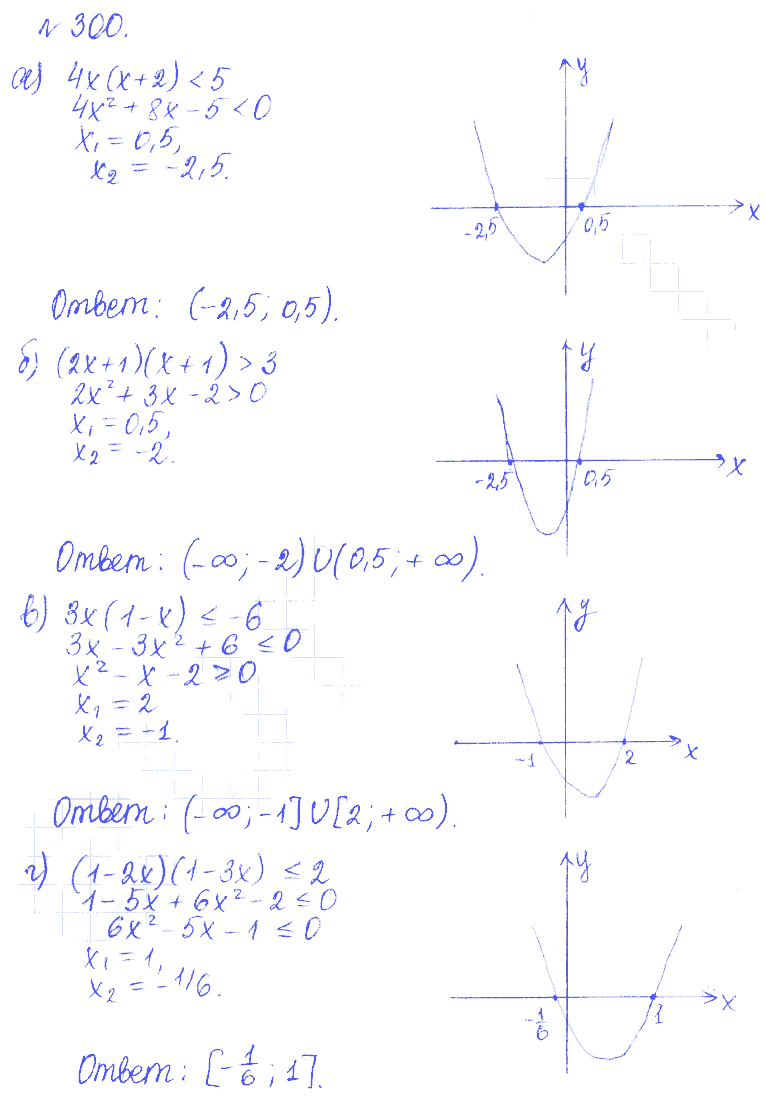 № 300.
а) 4x(x+2) < 5
4x² + 8x - 5 < 0
x₁ = 0,5,
x₂ = -2,5.
y
x
-2,5
0,5
Ответ: (-2,5; 0,5).
б) (2x+1)(x+1) > 3
2x² + 3x - 2 > 0
x₁ = 0,5,
x₂ = -2.
y
x
-2,5
0,5
Ответ: (-∞; -2)∪(0,5; +∞).
в) 3x(1-x) ≤ -6
3x - 3x² + 6 ≤ 0
x² - x - 2 ≥ 0
x₁ = 2
x₂ = -1.
y
x
-1
2
Ответ: (-∞; -1]∪[2; +∞).
г) (1-2x)(1-3x) ≤ 2
1 - 5x + 6x² - 2 ≤ 0
6x² - 5x - 1 ≤ 0
x₁ = 1,
x₂ = -1/6.
y
x
-1/6
1
Ответ: [-1/6; 1].